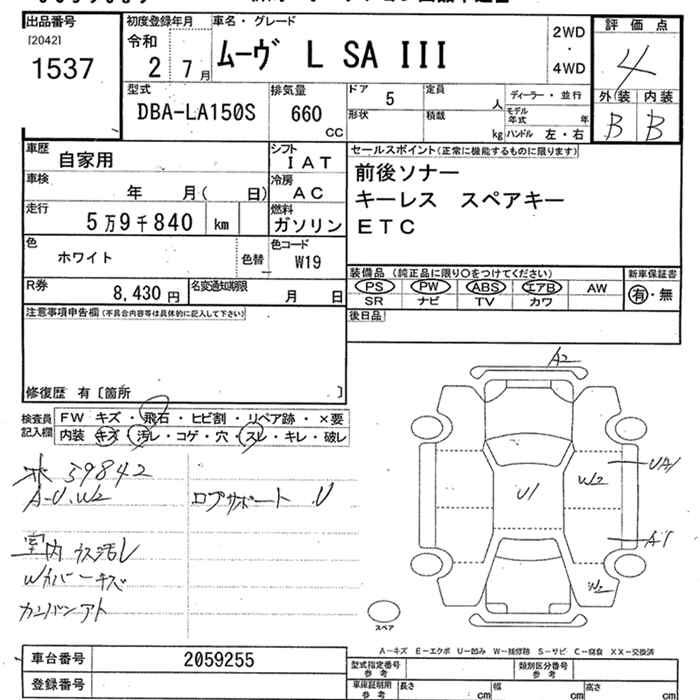 出品番号
[2042]
1537
初度登録年月
令和
2 7月
車名・グレード
ムーヴ L SA III
2WD
・
4WD
評価点
4
外装 内装
B B
型式
DBA-LA150S
排気量
660
CC
ドア 5
定員 人
形状
積載 kg
ディーラー・並行
モデル年式 年
ハンドル 左・右
車歴
自家用
シフト
IAT
車検
年 月( 日)
冷房
AC
走行
5万9千840 km
燃料
ガソリン
色
ホワイト
色替
色コード
W19
R券
8,430 円
名変通知期限
月 日
セールスポイント(正常に機能するものに限ります)
前後ソナー
キーレス スペアキー
ETC
装備品 (純正品に限り〇をつけてください)
PS PW ABS エアB AW
SR ナビ TV カワ
新車保証書
有・無
後日品
注意事項申告欄(不具合内容等は具体的に記入して下さい)
修復歴 有〔箇所 〕
検査員
記入欄
FW キズ・飛石・ヒビ割・リペア跡・×要
内装 キズ・汚レ・コゲ・穴・スレ・キレ・破レ
59842
A-U.W2
ロアサポート U
室内 ウス汚レ
カバーキズ
カンバンアト
A2
UA1
W2
U1
A1
W2
スペア
A−キズ E−エクボ U−凹み W−補修跡 S−サビ C−腐食 XX−交換済
車台番号
2059255
登録番号
型式指定番号
参考
類別区分番号
参考
車庫証明用
参考
長さ cm
幅 cm
高さ cm